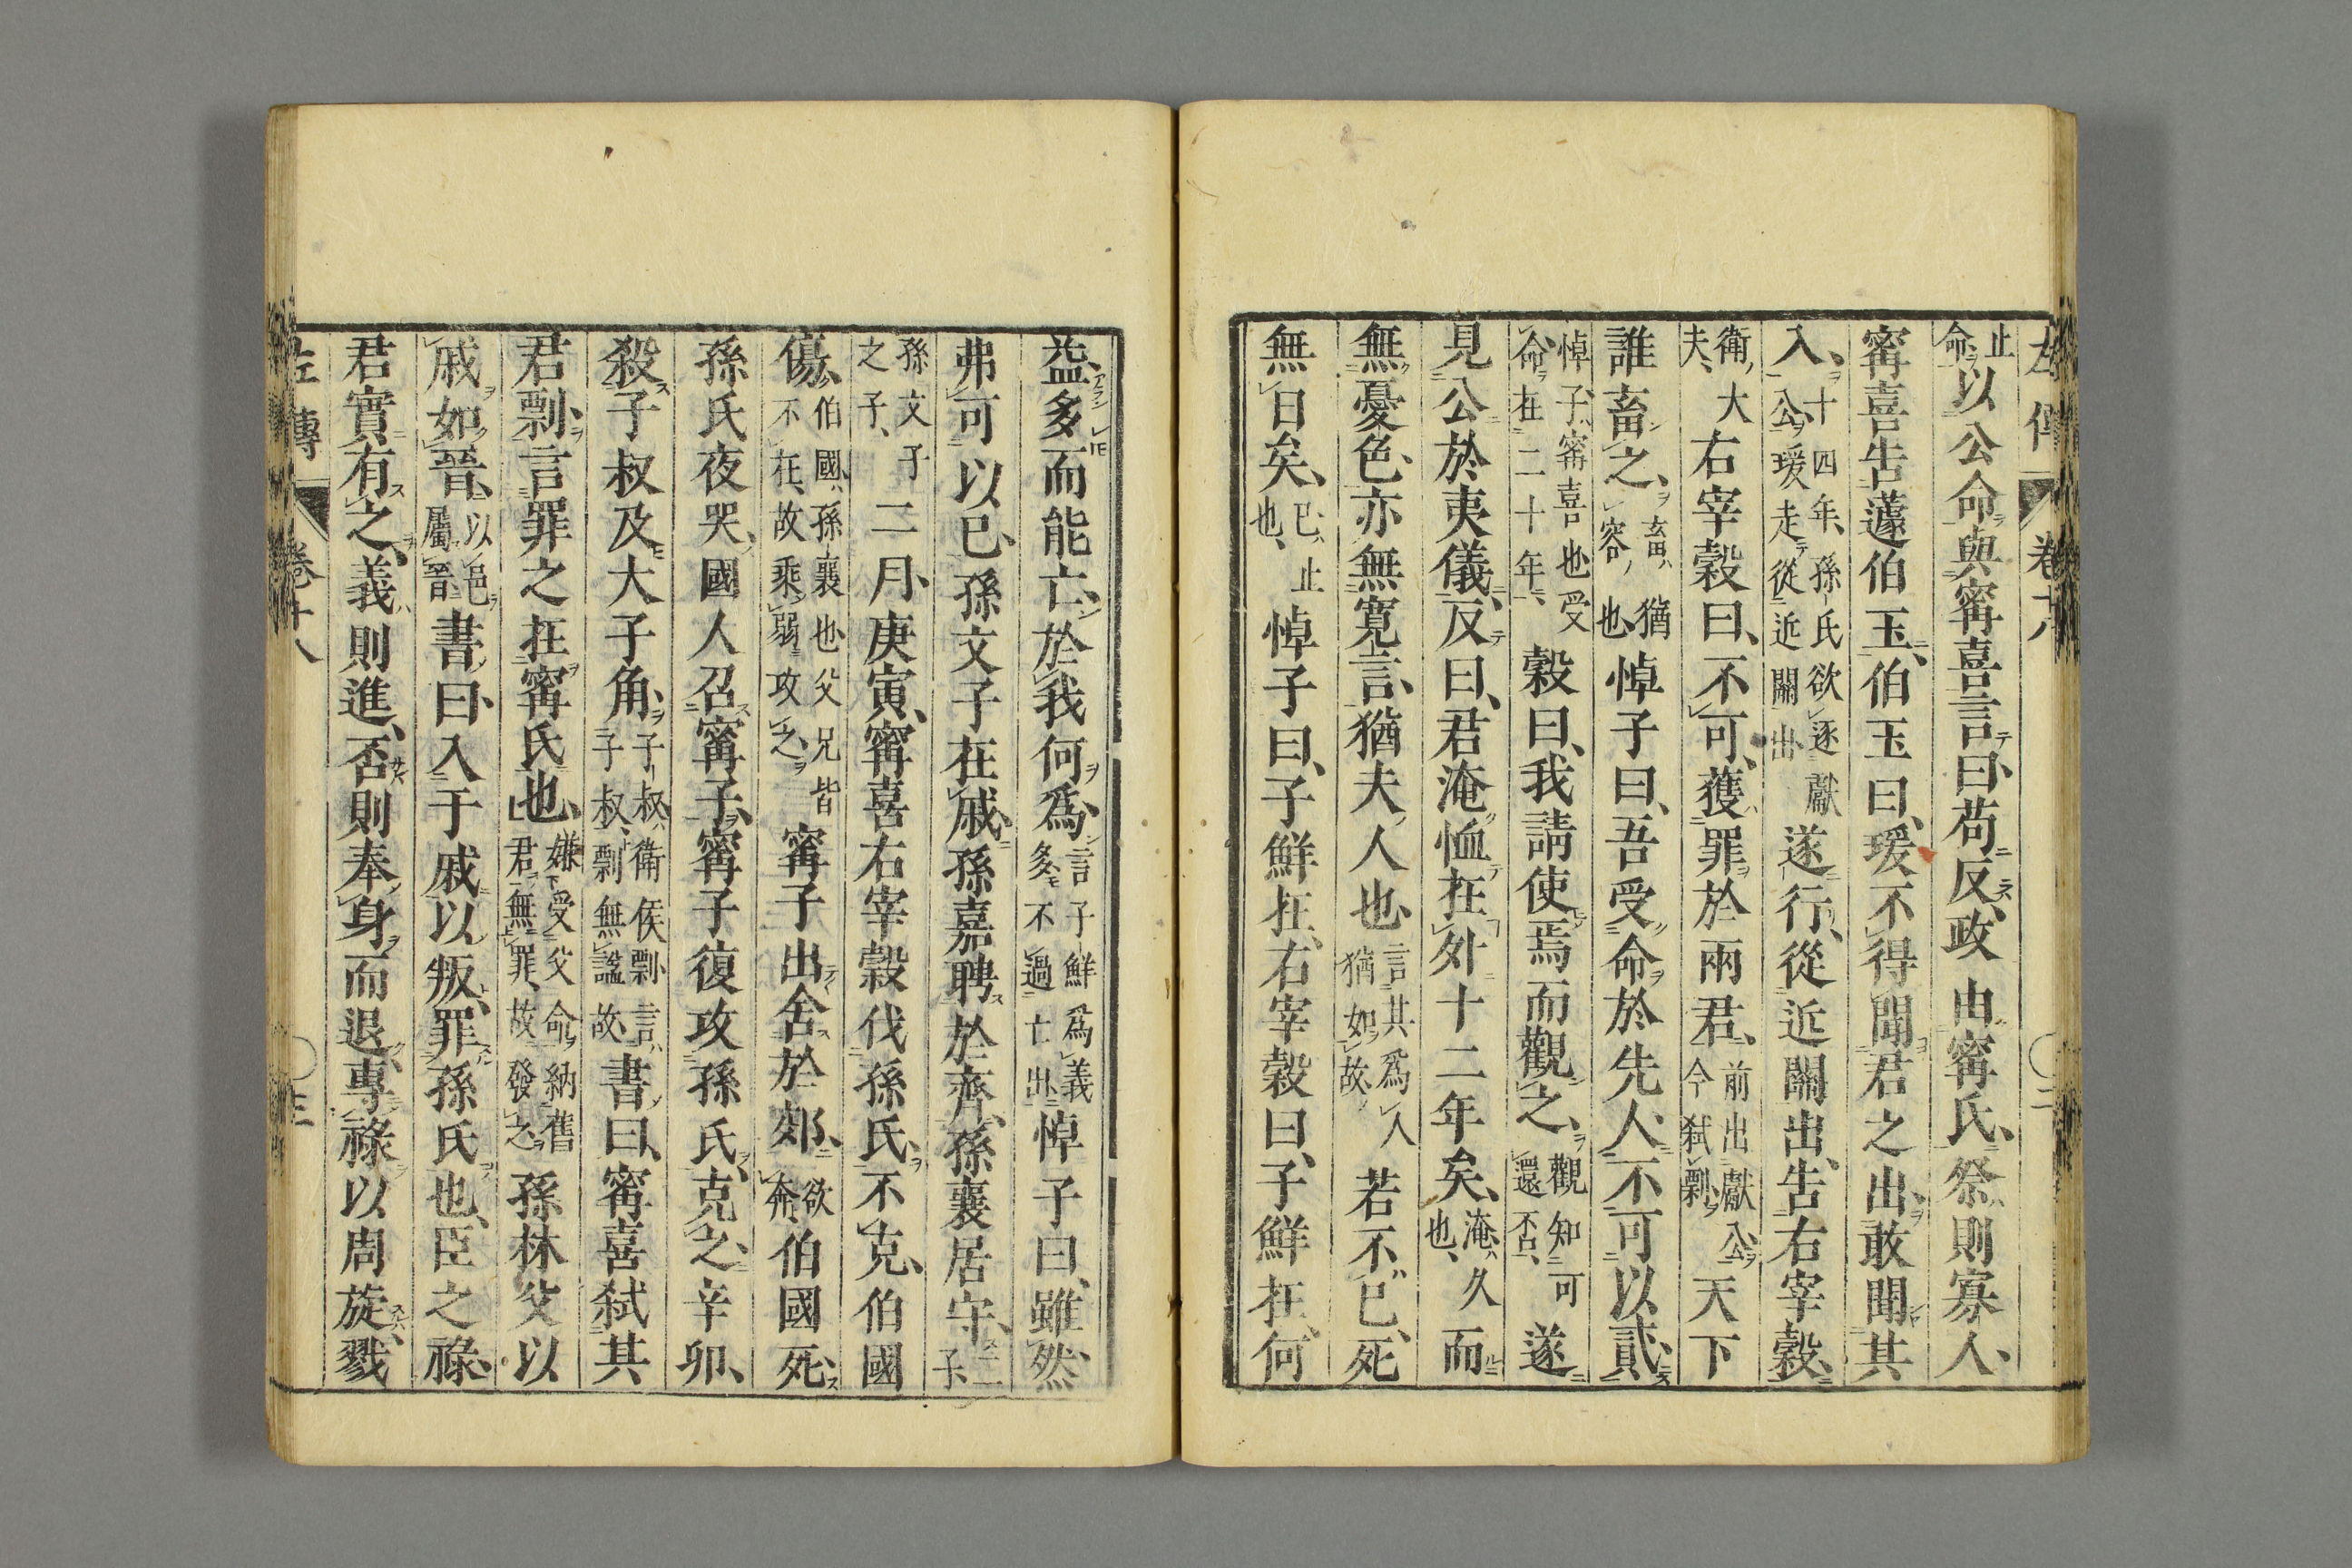 左傳 卷十八 二
止命以公命與甯喜言曰苟反政由甯氏祭則寡人
甯喜告蘧伯玉伯玉曰瑗不得聞君之出敢聞其
入十四年孫氏欲逐獻公瑗走從近關出遂行從近關出告右宰穀
衛大夫右宰穀曰不可獲罪於兩君前出獻公今弑剽天下
誰畜之畜猶容也悼子曰吾受命於先人不可以貳
悼子甯喜也受命在二十年穀曰我請使焉而觀之觀知可還否遂
見公於夷儀反曰君淹恤在外十二年矣淹久也而
無憂色亦無寬言猶夫人也言其爲人猶如故若不已死
無日矣已止也悼子曰子鮮在右宰穀曰子鮮在何
益多而能亡於我何爲言子鮮爲義多不過亡出悼子曰雖然
弗可以已孫文子在戚孫嘉聘於齊孫襄居守二子
孫文子之子二月庚寅甯喜右宰穀伐孫氏不克伯國
傷伯國孫襄也父兄皆不在故乘弱攻之甯子出舍於郊欲奔伯國死
孫氏夜哭國人召甯子甯子復攻孫氏克之辛卯
殺子叔及大子角子叔衛侯剽言子叔剽無謚故書曰甯喜弑其
君剽言罪之在甯氏也嫌受父命納舊君無罪故發之孫林父以
戚如晉以邑屬晉書曰入于戚以叛罪孫氏也臣之祿
君實有之義則進否則奉身而退專祿以周旋戮
左傳 卷十八 三